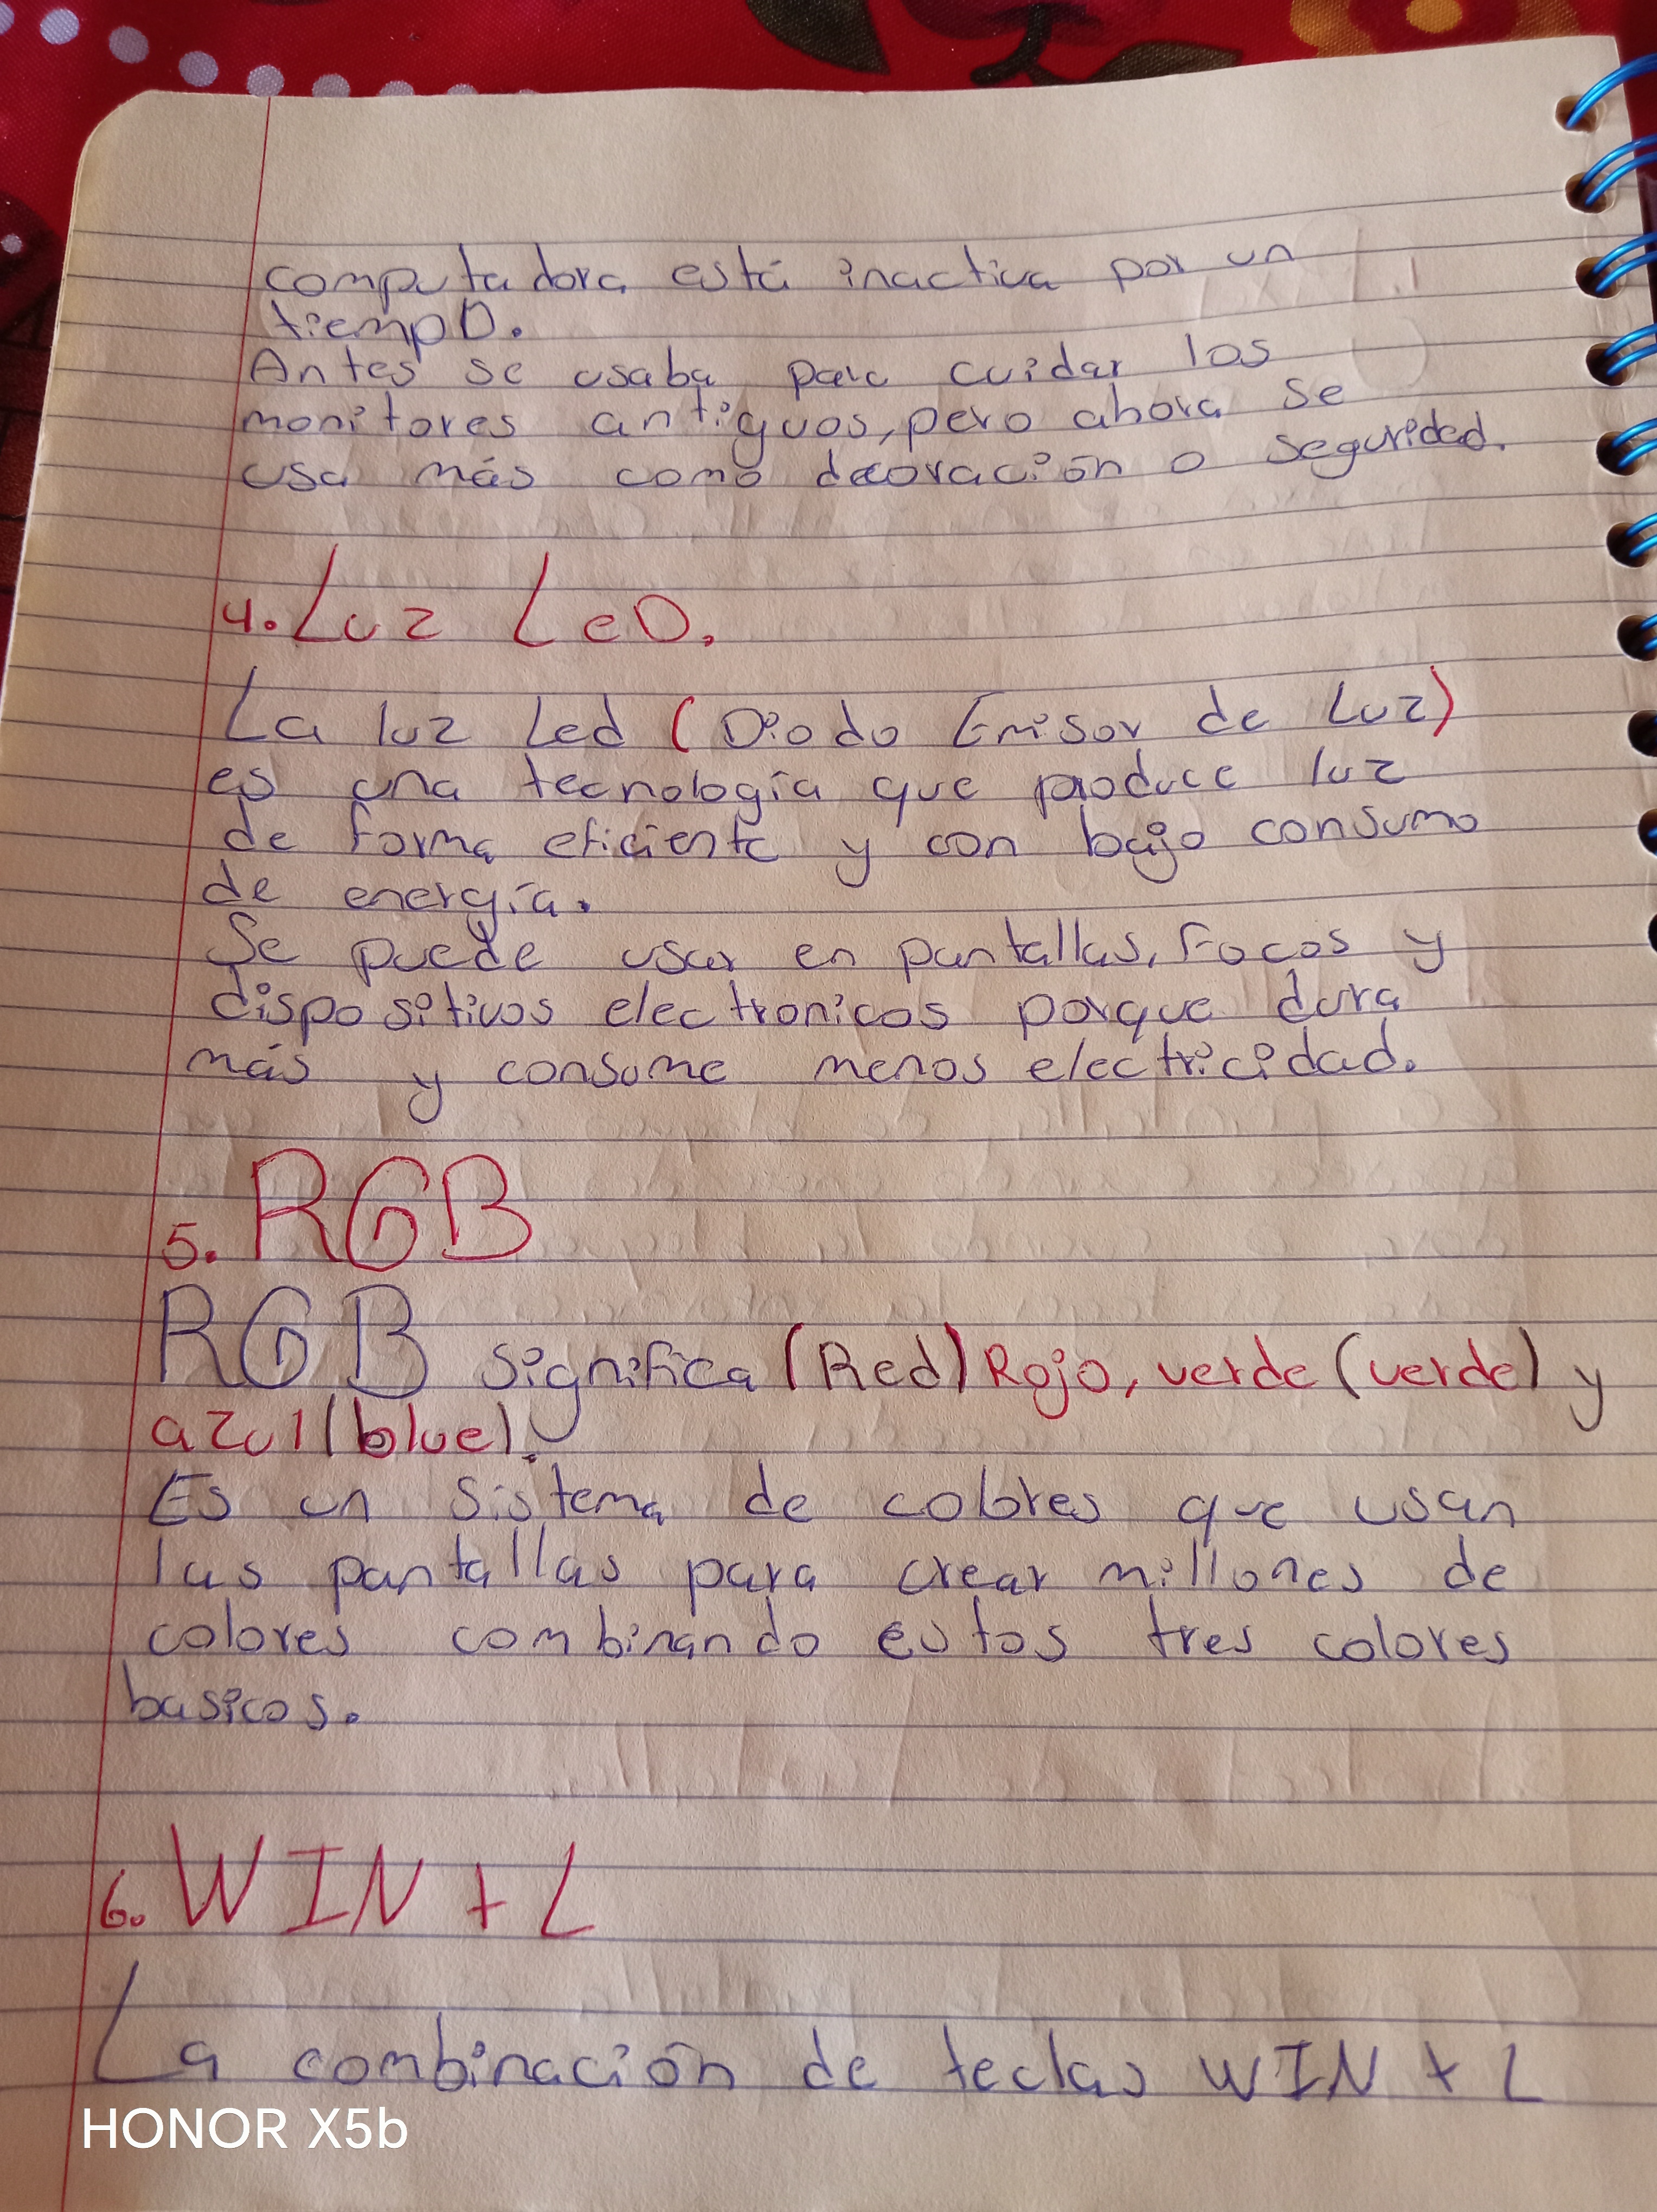 computadora está inactiva por un
tiempo.
Antes se usaba para cuidar los
monitores antiguos, pero ahora se
usa más como decoración o seguridad.
4. Luz LeD.
La luz Led (Diodo Emisor de Luz)
es una tecnología que produce luz
de forma eficiente y con bajo consumo
de energía.
Se puede usar en pantallas, Focos y
dispositivos electronicos porque dura
más y consume menos electricidad.
5. RGB
RGB significa (Red) Rojo, verde (verde) y
azul (blue).
Es un sistema de colores que usan
las pantallas para crear millones de
colores combinando estos tres colores
basicos.
6. WIN + L
La combinación de teclas WIN + L
HONOR X5b